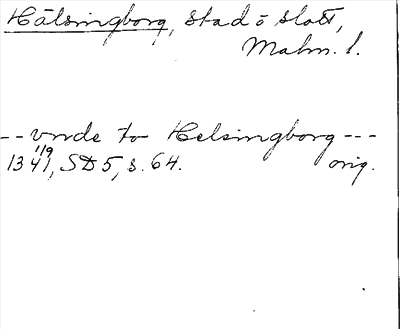 Hälsingborg, stad o slott,
Malm. l.
-- vnde to Helsingborg ---
13 1/9 41, SD 5, s. 64. orig.